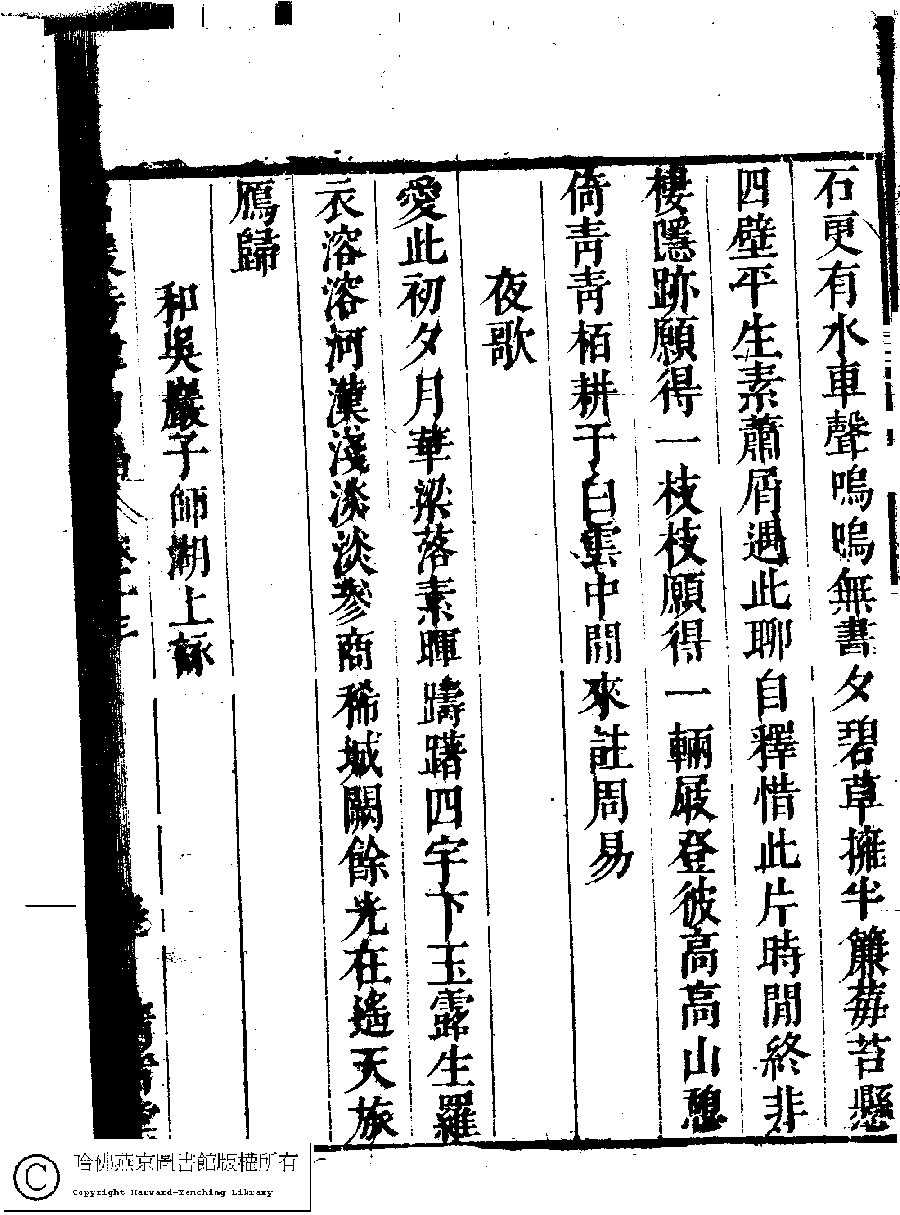 石更有水車聲嗚嗚無書夕碧草擁半簾莓苔懸
四壁平生素蕭屑遇此聊自釋惜此片時閒終非
棲隱跡願得一枝枝願得一輛屐登彼高高山憩
倚青青栢耕于白雲中閒來註周易
夜歌
愛此初夕月華梁落素暉躊躇四宇下玉露生羅
衣溶溶河漢淺淡淡參商稀城闕餘光在遙天旅
鴈歸
和吳巖子師湖上詠
哈佛燕京圖書館版權所有
Copyright Harvard-Yenching Library